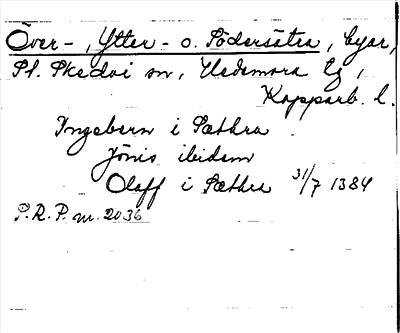 Över-, Ytter- o. Södersätra, byar,
St. Skedvi sn, Hedemora tg,
Kopparb. l.
Ingebern i Sæthra
Jönis ibidem
Olaff i Sæthra 31/7 1384
S.R.P. nr. 2036